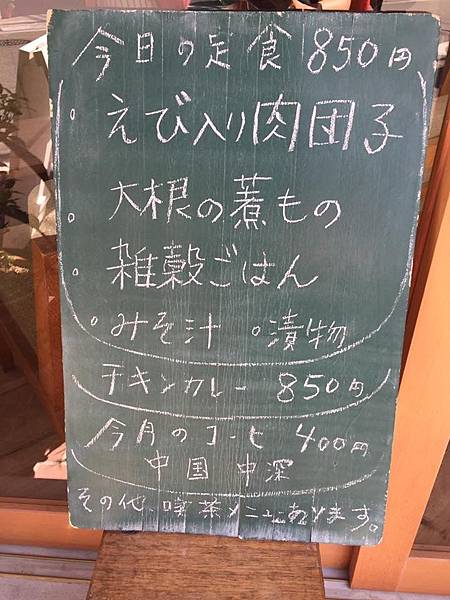 今日の定食 850円
。えび入り肉団子
。大根の煮もの
。雑穀ごはん
。みそ汁 。漬物
チキンカレー 850円
今月のコーヒー 400円
中国 中深
その他、喫茶メニューあります。